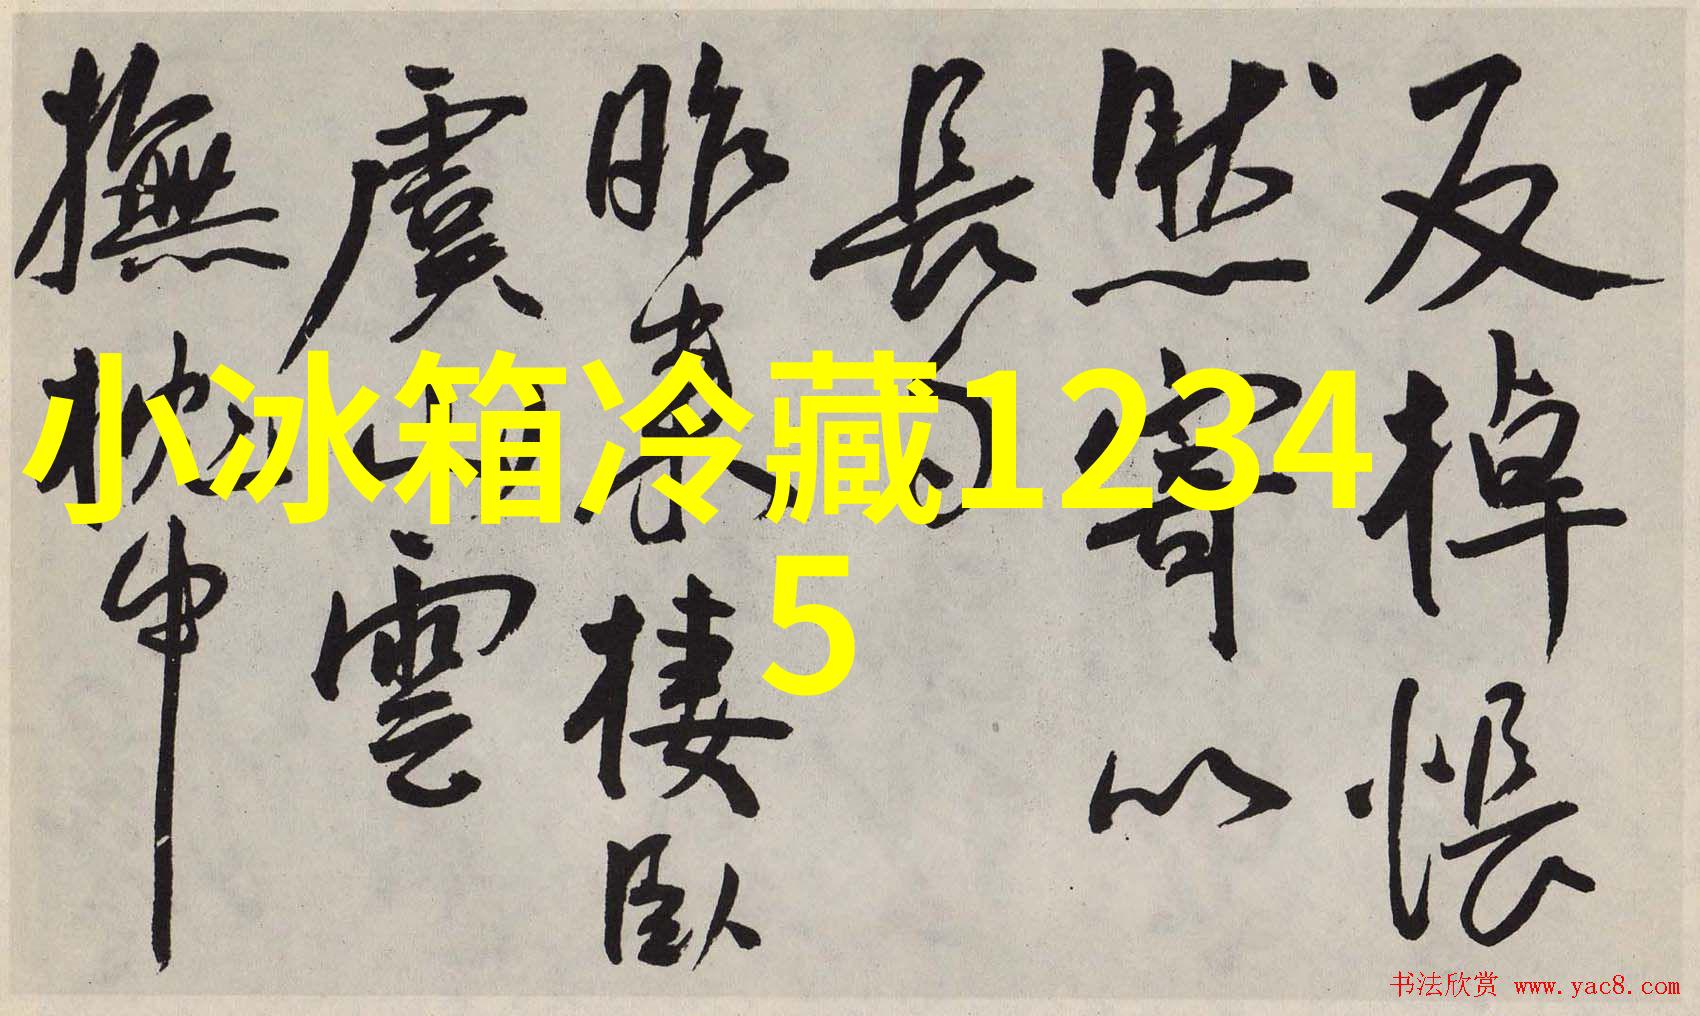 反棹悵
然寄以
長句
昨來棲臥
虞山雲
撫枕中
小冰箱冷藏1234
5
书法欣赏 www.yac8.com